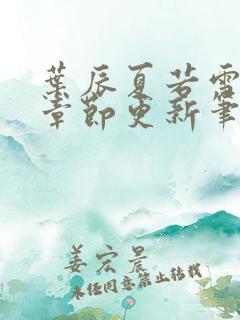 葉辰夏若雪
章節更新筆
姜宏晨
未经同意禁止转载